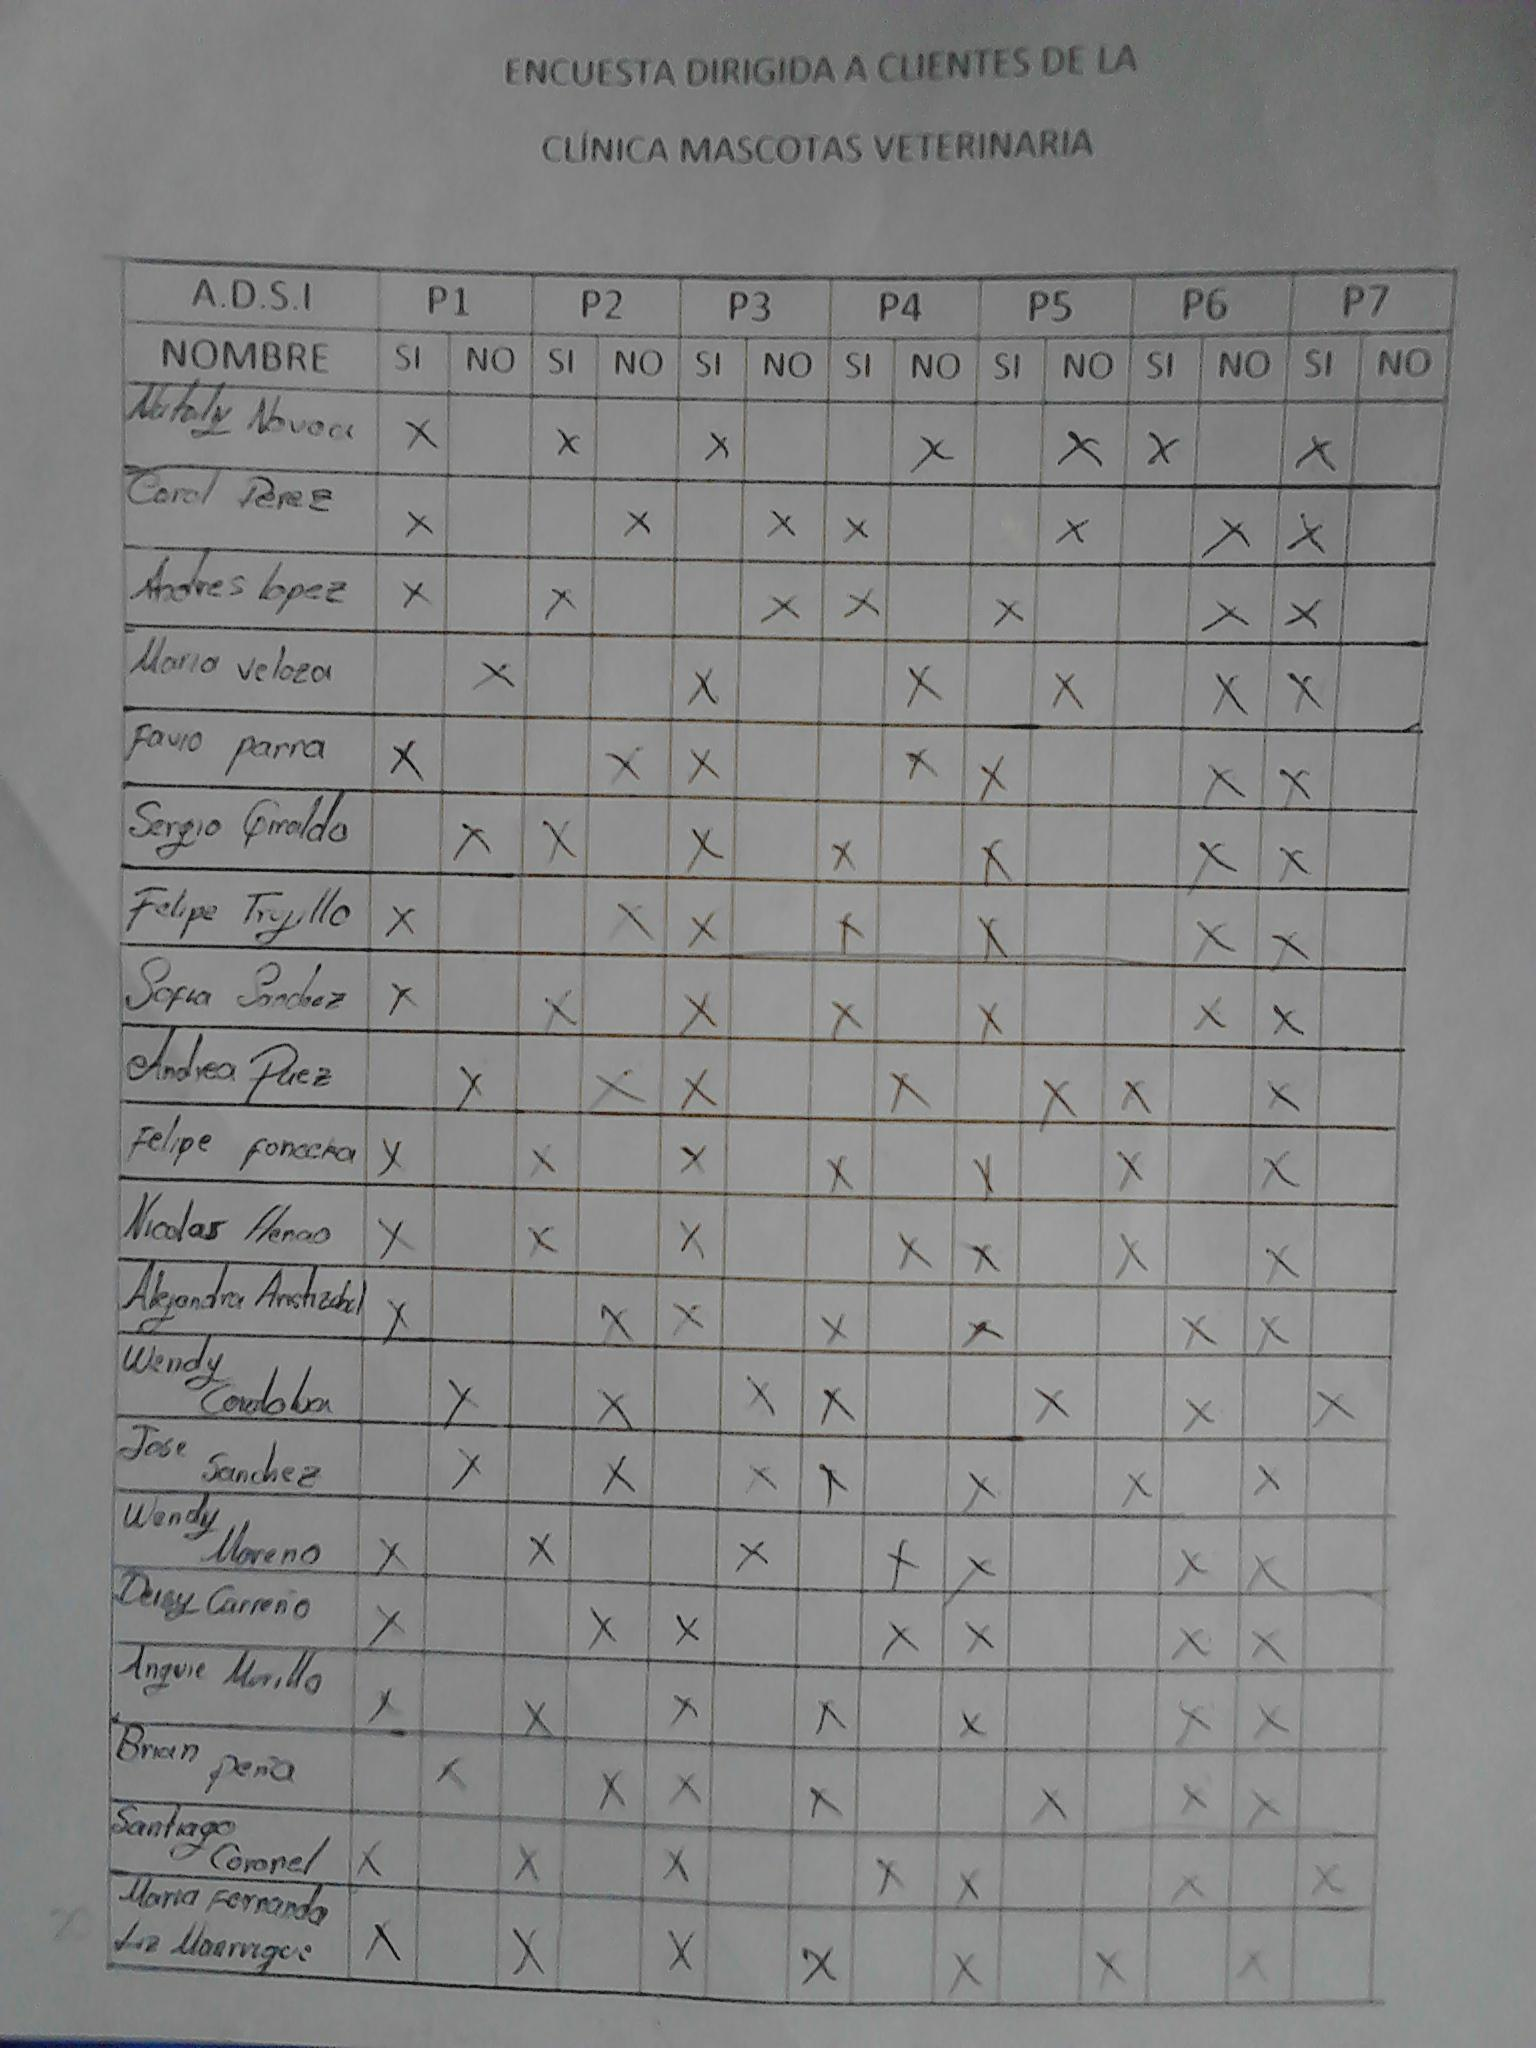 ENCUESTA DIRIGIDA A CLIENTES DE LA
CLÍNICA MASCOTAS VETERINARIA
A.D.S.I P1 P2 P3 P4 P5 P6 P7
NOMBRE SI NO SI NO SI NO SI NO SI NO SI NO SI NO
Nataly Novoa X X X X X X X
Carol Perez X X X X X X X
Andres lopez X X X X X X X
Maria veloza X X X X X X
Favio parra X X X X X X X
Sergio Giraldo X X X X X X X
Felipe Trujillo X X X X X X X
Sofia Sanchez X X X X X X X
Andrea Paez X X X X X X X
Felipe X X X X X X X
Nicolas Henao X X X X X X X
Alejandra Aristizabal X X X X X X X
Wendy
Cordoba X X X X X X X
Jose
Sanchez X X X X X X X
Wendy
Moreno X X X X X X X
Deisy Carreño X X X X X X X
Anguie Murillo X X X X X X X
Brian
peña X X X X X X X
Santiago
Coronel X X X X X X X
Maria Fernanda
Manrrique X X X X X X X